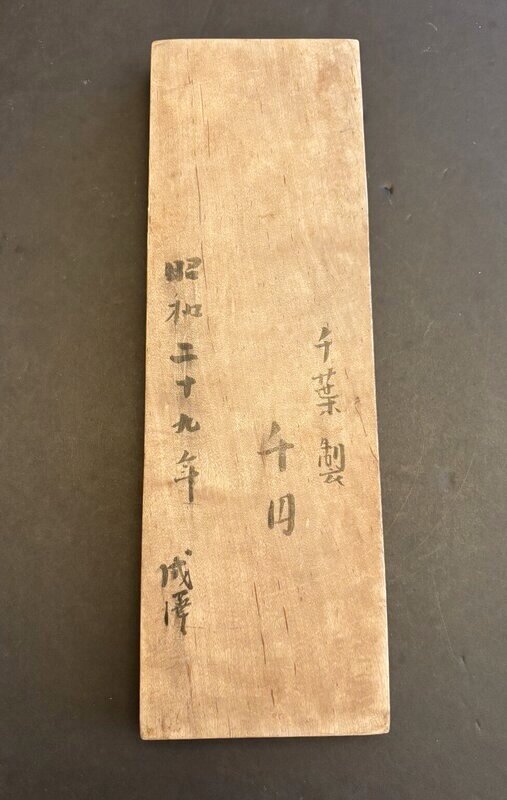 千葉製
千円
昭和二十九年 成澤